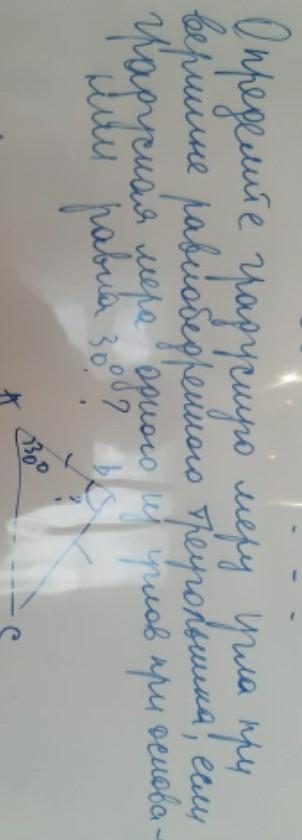 Определите градусную меру угла при
вершине равнобедренного треугольника, если
градусная мера одного из углов при основа-
нии равна 30°?
A
30°
b
?
C